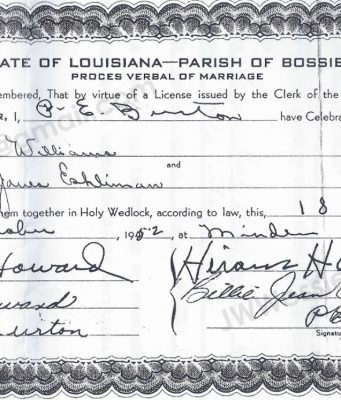 ATE OF LOUISIANA—PARISH OF BOSSIE
PROCES VERBAL OF MARRIAGE
embered, That by virtue of a License issued by the Clerk of the
R, I, P. E. Burton have Celebra
Williams
and
Jones Eshliman
hem together in Holy Wedlock, according to law, this, 18
ober 1952, at Minden
Howard
Howard
Burton
Hiram
Billie Jean
P
Signatu